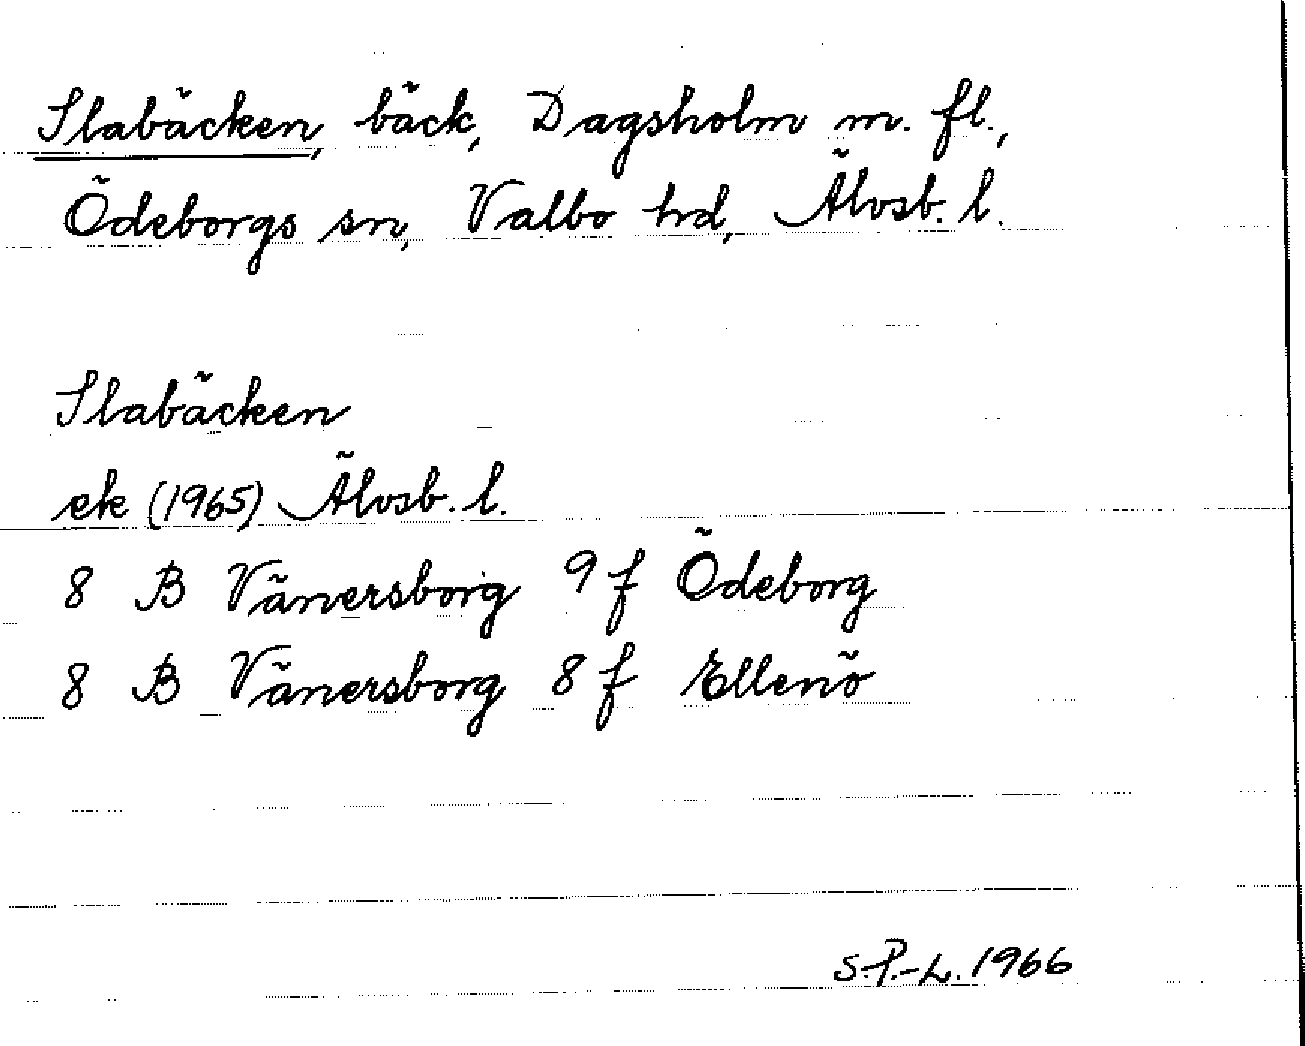 Slabäcken, bäck, Dagsholm m. fl.,
Ödeborgs sn, Valbo hd, Älvsb. l.
Slabäcken
ek (1965) Älvsb. l.
8 B Vänersborg 9 f Ödeborg
8 B Vänersborg 8 f Ellenö
S.P.-L. 1966